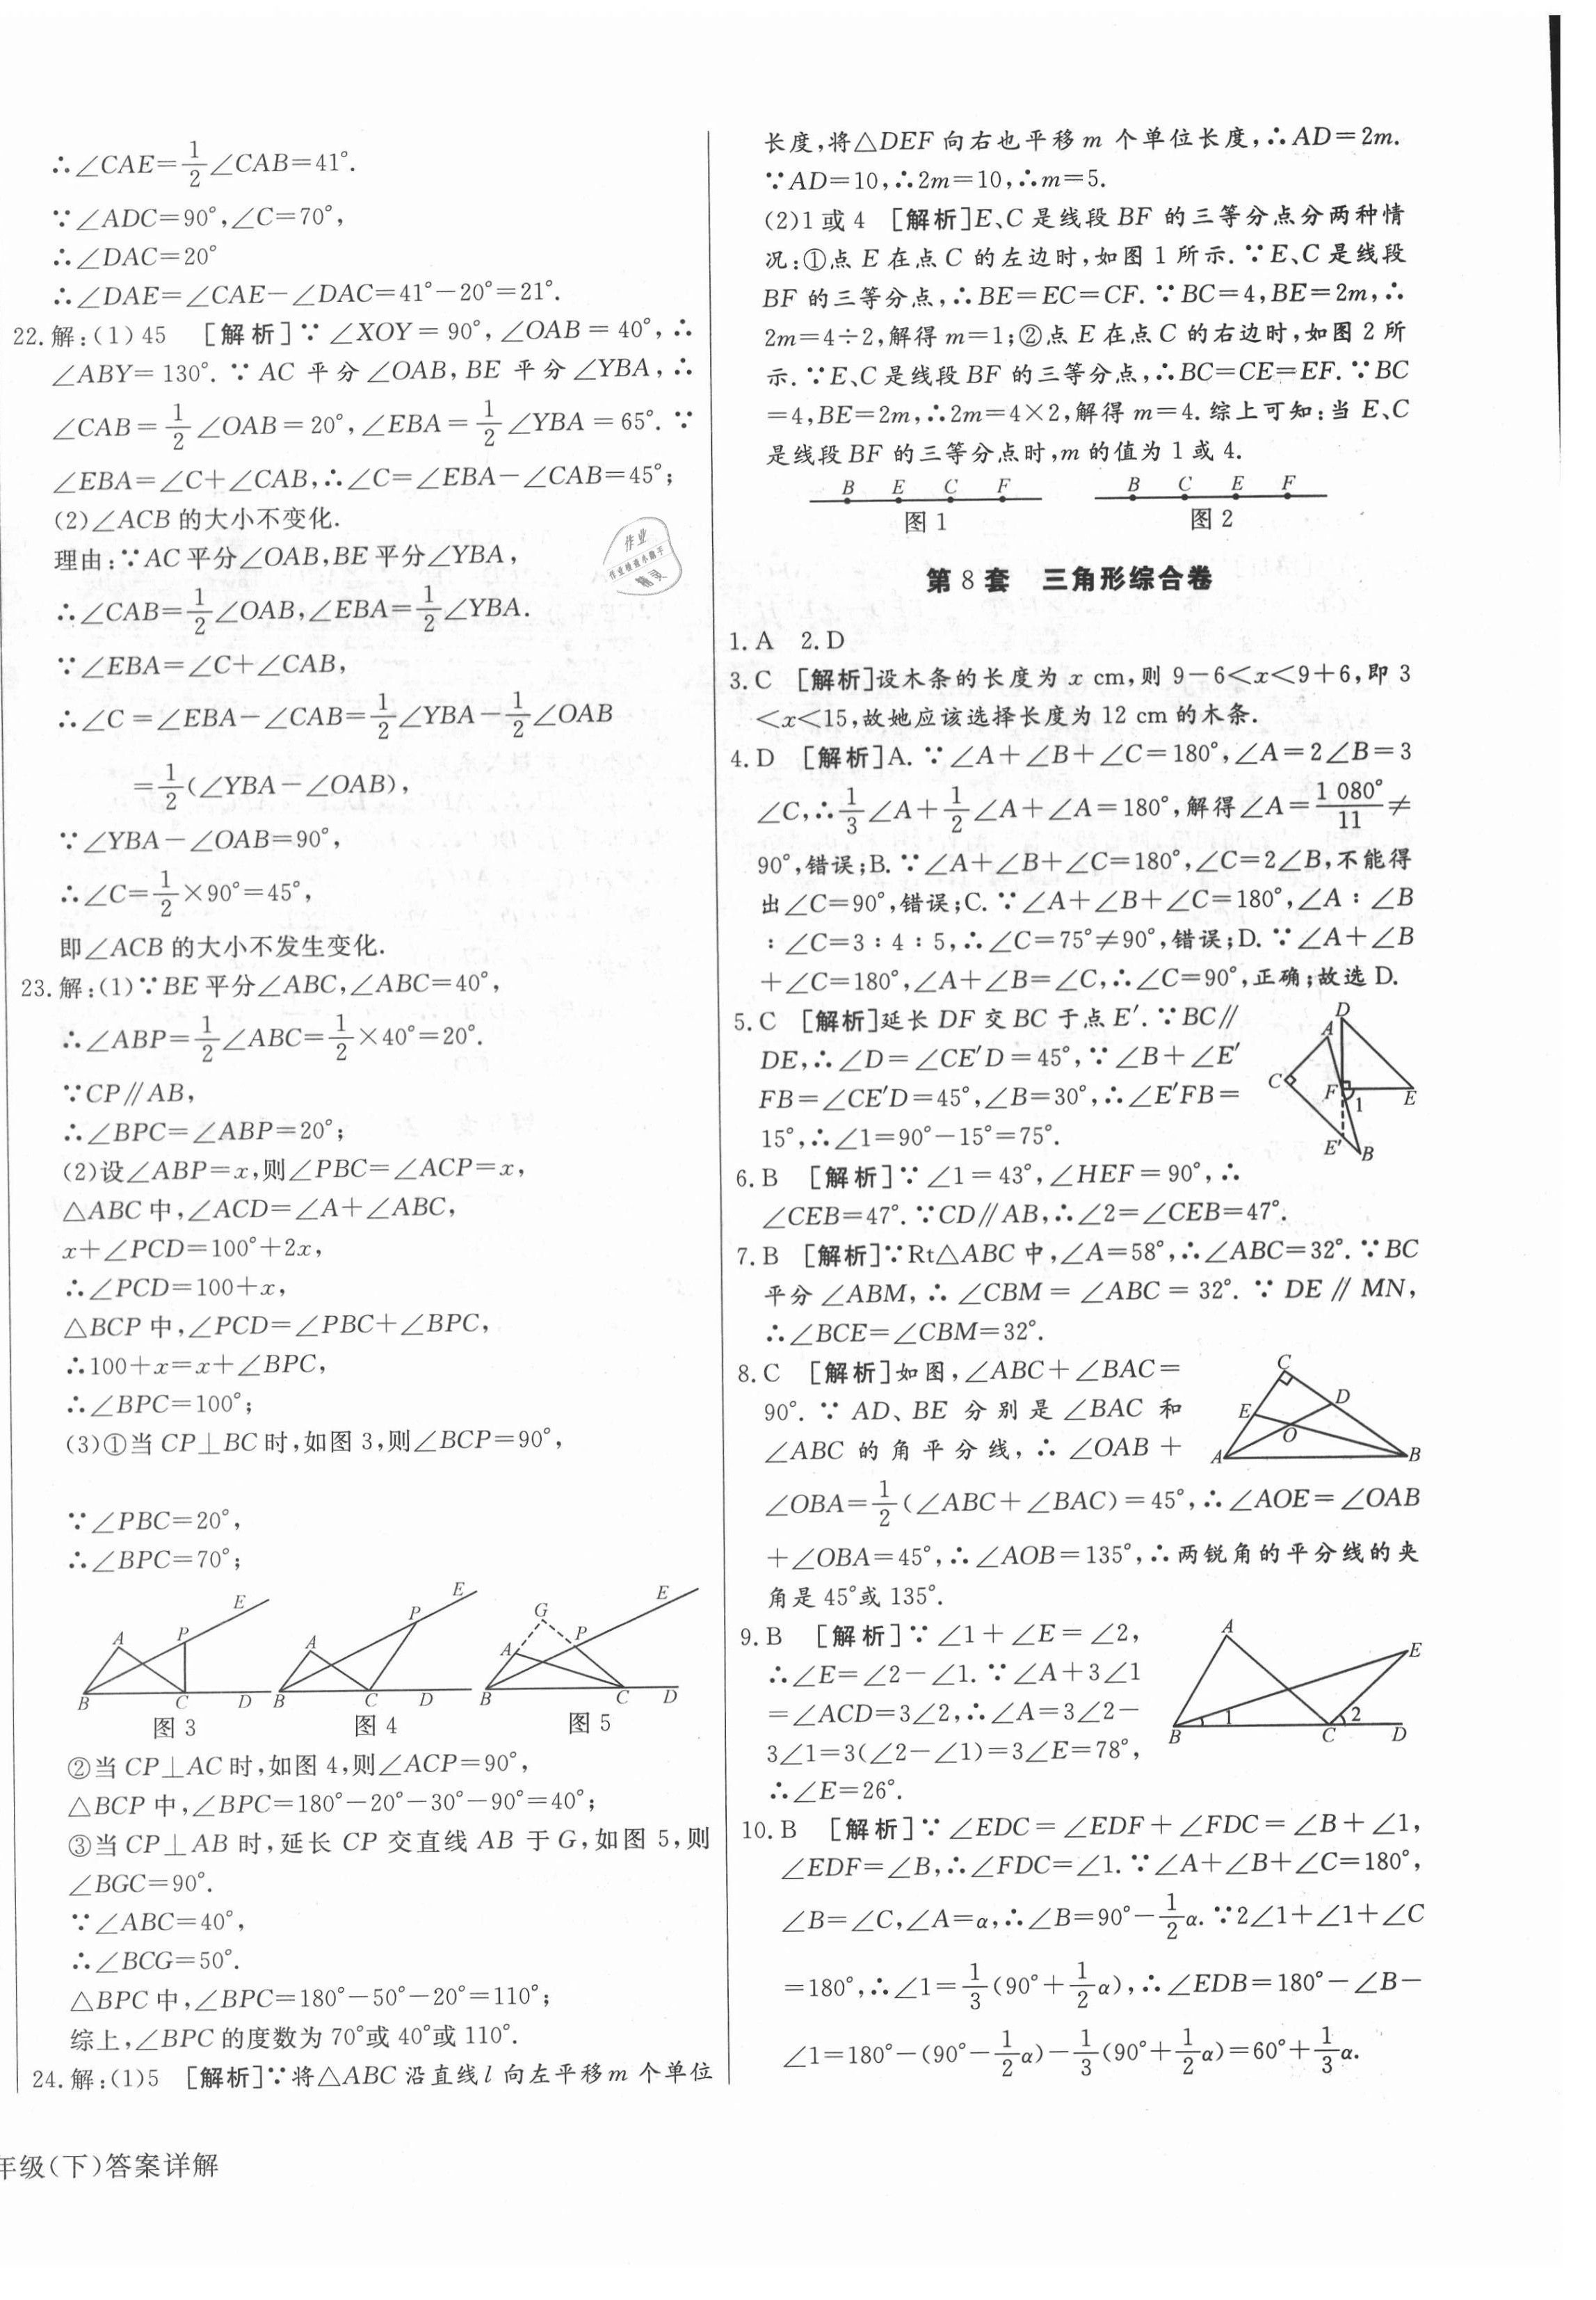 ∴∠CAE=1/2∠CAB=41°.
∵∠ADC=90°,∠C=70°,
∴∠DAC=20°
∴∠DAE=∠CAE-∠DAC=41°-20°=21°.
22.解:(1)45 [解析]∵∠XOY=90°,∠OAB=40°,∴
∠ABY=130°.∵AC 平分∠OAB,BE 平分∠YBA,∴
∠CAB=1/2∠OAB=20°,∠EBA=1/2∠YBA=65°.∵
∠EBA=∠C+∠CAB,∴∠C=∠EBA-∠CAB=45°;
(2)∠ACB 的大小不变化.
理由:∵AC 平分∠OAB,BE 平分∠YBA,
∴∠CAB=1/2∠OAB,∠EBA=1/2∠YBA.
∵∠EBA=∠C+∠CAB,
∴∠C=∠EBA-∠CAB=1/2∠YBA-1/2∠OAB
=1/2(∠YBA-∠OAB),
∵∠YBA-∠OAB=90°,
∴∠C=1/2×90°=45°,
即∠ACB 的大小不发生变化.
23.解:(1)∵BE 平分∠ABC,∠ABC=40°,
∴∠ABP=1/2∠ABC=1/2×40°=20°.
∵CP∥AB,
∴∠BPC=∠ABP=20°;
(2)设∠ABP=x,则∠PBC=∠ACP=x,
△ABC 中,∠ACD=∠A+∠ABC,
x+∠PCD=100°+2x,
∴∠PCD=100+x,
△BCP 中,∠PCD=∠PBC+∠BPC,
∴100+x=x+∠BPC,
∴∠BPC=100°;
(3)①当 CP⊥BC 时,如图 3,则∠BCP=90°,
∵∠PBC=20°,
∴∠BPC=70°;
A P E B C D
图 3
A P E B C D
图 4
G A P E B C D
图 5
②当 CP⊥AC 时,如图 4,则∠ACP=90°,
△BCP 中,∠BPC=180°-20°-30°-90°=40°;
③当 CP⊥AB 时,延长 CP 交直线 AB 于 G,如图 5,则
∠BGC=90°.
∵∠ABC=40°,
∴∠BCG=50°.
△BPC 中,∠BPC=180°-50°-20°=110°;
综上,∠BPC 的度数为 70°或 40°或 110°.
24.解:(1)5 [解析]∵将△ABC 沿直线 l 向左平移 m 个单位
年级(下)答案详解
长度,将△DEF 向右也平移 m 个单位长度,∴AD=2m.
∵AD=10,∴2m=10,∴m=5.
(2)1 或 4 [解析]E、C 是线段 BF 的三等分点分两种情
况:①点 E 在点 C 的左边时,如图 1 所示.∵E、C 是线段
BF 的三等分点,∴BE=EC=CF.∵BC=4,BE=2m,∴
2m=4÷2,解得 m=1;②点 E 在点 C 的右边时,如图 2 所
示.∵E、C 是线段 BF 的三等分点,∴BC=CE=EF.∵BC
=4,BE=2m,∴2m=4×2,解得 m=4.综上可知:当 E、C
是线段 BF 的三等分点时,m 的值为 1 或 4.
B E C F
图 1
B C E F
图 2
第 8 套 三角形综合卷
1.A 2.D
3.C [解析]设木条的长度为 x cm,则 9-6<x<9+6,即 3
<x<15,故她应该选择长度为 12 cm 的木条.
4.D [解析]A.∵∠A+∠B+∠C=180°,∠A=2∠B=3
∠C,∴1/3∠A+1/2∠A+∠A=180°,解得∠A=1 080°/11≠
90°,错误;B.∵∠A+∠B+∠C=180°,∠C=2∠B,不能得
出∠C=90°,错误;C.∵∠A+∠B+∠C=180°,∠A:∠B
:∠C=3:4:5,∴∠C=75°≠90°,错误;D.∵∠A+∠B
+∠C=180°,∠A+∠B=∠C,∴∠C=90°,正确;故选 D.
5.C [解析]延长 DF 交 BC 于点 E′.∵BC∥
DE,∴∠D=∠CE′D=45°,∵∠B+∠E′
FB=∠CE′D=45°,∠B=30°,∴∠E′FB=
15°,∴∠1=90°-15°=75°.
D A C F 1 E E′ B
6.B [解析]∵∠1=43°,∠HEF=90°,∴
∠CEB=47°.∵CD∥AB,∴∠2=∠CEB=47°.
7.B [解析]∵Rt△ABC 中,∠A=58°,∴∠ABC=32°.∵BC
平分∠ABM,∴∠CBM=∠ABC=32°.∵DE∥MN,
∴∠BCE=∠CBM=32°.
8.C [解析]如图,∠ABC+∠BAC=
90°.∵AD、BE 分别是∠BAC 和
∠ABC 的角平分线,∴∠OAB+
∠OBA=1/2(∠ABC+∠BAC)=45°,∴∠AOE=∠OAB
+∠OBA=45°,∴∠AOB=135°,∴两锐角的平分线的夹
角是 45°或 135°.
C E D O A B
9.B [解析]∵∠1+∠E=∠2,
∴∠E=∠2-∠1.∵∠A+3∠1
=∠ACD=3∠2,∴∠A=3∠2-
3∠1=3(∠2-∠1)=3∠E=78°,
∴∠E=26°.
A E B 1 C 2 D
10.B [解析]∵∠EDC=∠EDF+∠FDC=∠B+∠1,
∠EDF=∠B,∴∠FDC=∠1.∵∠A+∠B+∠C=180°,
∠B=∠C,∠A=α,∴∠B=90°-1/2α.∵2∠1+∠1+∠C
=180°,∴∠1=1/3(90°+1/2α),∴∠EDB=180°-∠B-
∠1=180°-(90°-1/2α)-1/3(90°+1/2α)=60°+1/3α.